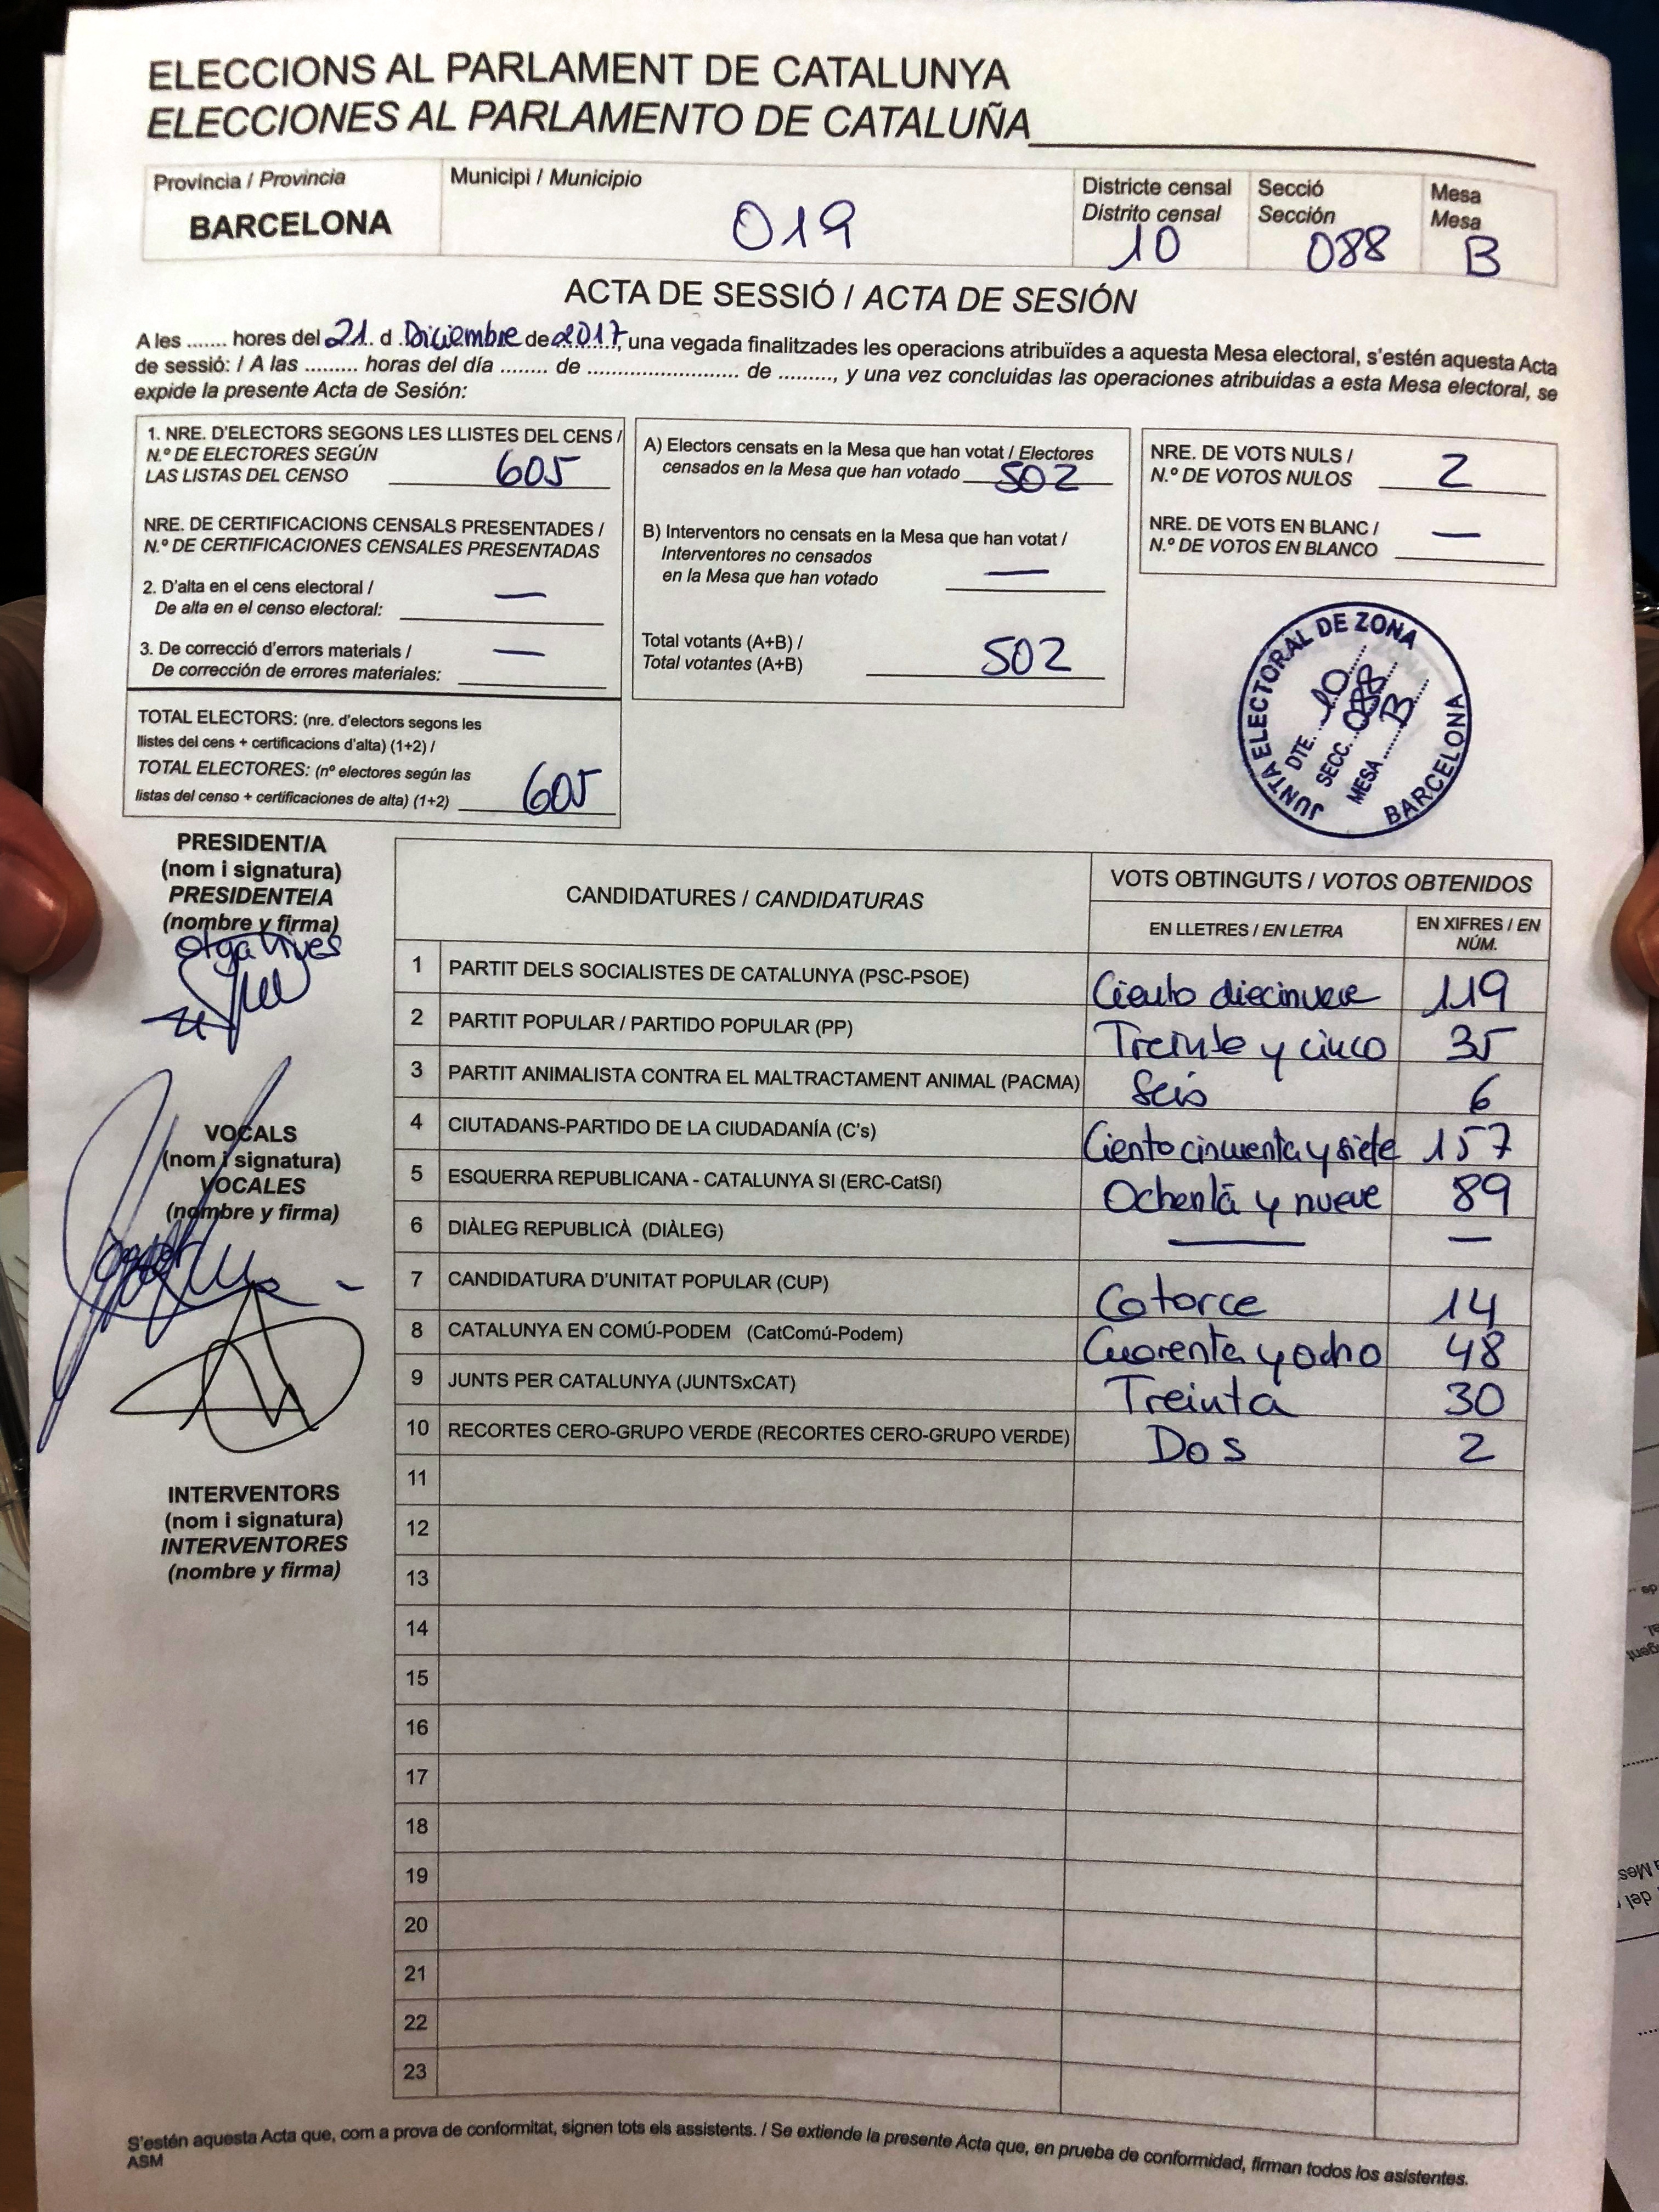 ELECCIONS AL PARLAMENT DE CATALUNYA
ELECCIONES AL PARLAMENTO DE CATALUÑA
Província / Provincia
BARCELONA
Municipi / Municipio
019
Districte censal
Distrito censal
10
Secció
Sección
088
Mesa
Mesa
B
ACTA DE SESSIÓ / ACTA DE SESIÓN
A les ....... hores del 21 d Diciembre de 2017, una vegada finalitzades les operacions atribuïdes a aquesta Mesa electoral, s'estén aquesta Acta
de sessió: / A las ......... horas del día ......... de ......................... de ........, y una vez concluidas las operaciones atribuidas a esta Mesa electoral, se
expide la presente Acta de Sesión:
1. NRE. D'ELECTORS SEGONS LES LLISTES DEL CENS /
N.º DE ELECTORES SEGÚN
LAS LISTAS DEL CENSO 605
NRE. DE CERTIFICACIONS CENSALS PRESENTADES /
N.º DE CERTIFICACIONES CENSALES PRESENTADAS
2. D'alta en el cens electoral /
De alta en el censo electoral: —
3. De correcció d'errors materials /
De corrección de errores materiales: —
TOTAL ELECTORS: (nre. d'electors segons les
llistes del cens + certificacions d'alta) (1+2) /
TOTAL ELECTORES: (nº electores según las
listas del censo + certificaciones de alta) (1+2) 605
A) Electors censats en la Mesa que han votat / Electores
censados en la Mesa que han votado 502
B) Interventors no censats en la Mesa que han votat /
Interventores no censados
en la Mesa que han votado —
Total votants (A+B) /
Total votantes (A+B) 502
NRE. DE VOTS NULS /
N.º DE VOTOS NULOS 2
NRE. DE VOTS EN BLANC /
N.º DE VOTOS EN BLANCO —
JUNTA ELECTORAL DE ZONA
DTE. 10
SECC. 088
MESA B
BARCELONA
PRESIDENT/A
(nom i signatura)
PRESIDENTE/A
(nombre y firma)
VOCALS
(nom i signatura)
VOCALES
(nombre y firma)
INTERVENTORS
(nom i signatura)
INTERVENTORES
(nombre y firma)
CANDIDATURES / CANDIDATURAS
VOTS OBTINGUTS / VOTOS OBTENIDOS
EN LLETRES / EN LETRA
EN XIFRES / EN NÚM.
1 PARTIT DELS SOCIALISTES DE CATALUNYA (PSC-PSOE) Ciento diecinueve 119
2 PARTIT POPULAR / PARTIDO POPULAR (PP) Treinta y cinco 35
3 PARTIT ANIMALISTA CONTRA EL MALTRACTAMENT ANIMAL (PACMA) Seis 6
4 CIUTADANS-PARTIDO DE LA CIUDADANÍA (C's) Ciento cincuenta y siete 157
5 ESQUERRA REPUBLICANA - CATALUNYA SI (ERC-CatSí) Ochenta y nueve 89
6 DIÀLEG REPUBLICÀ (DIÀLEG) — —
7 CANDIDATURA D'UNITAT POPULAR (CUP) Catorce 14
8 CATALUNYA EN COMÚ-PODEM (CatComú-Podem) Cuarenta y ocho 48
9 JUNTS PER CATALUNYA (JUNTSxCAT) Treinta 30
10 RECORTES CERO-GRUPO VERDE (RECORTES CERO-GRUPO VERDE) Dos 2
11
12
13
14
15
16
17
18
19
20
21
22
23
S'estén aquesta Acta que, com a prova de conformitat, signen tots els assistents. / Se extiende la presente Acta que, en prueba de conformidad, firman todos los asistentes.
ASM